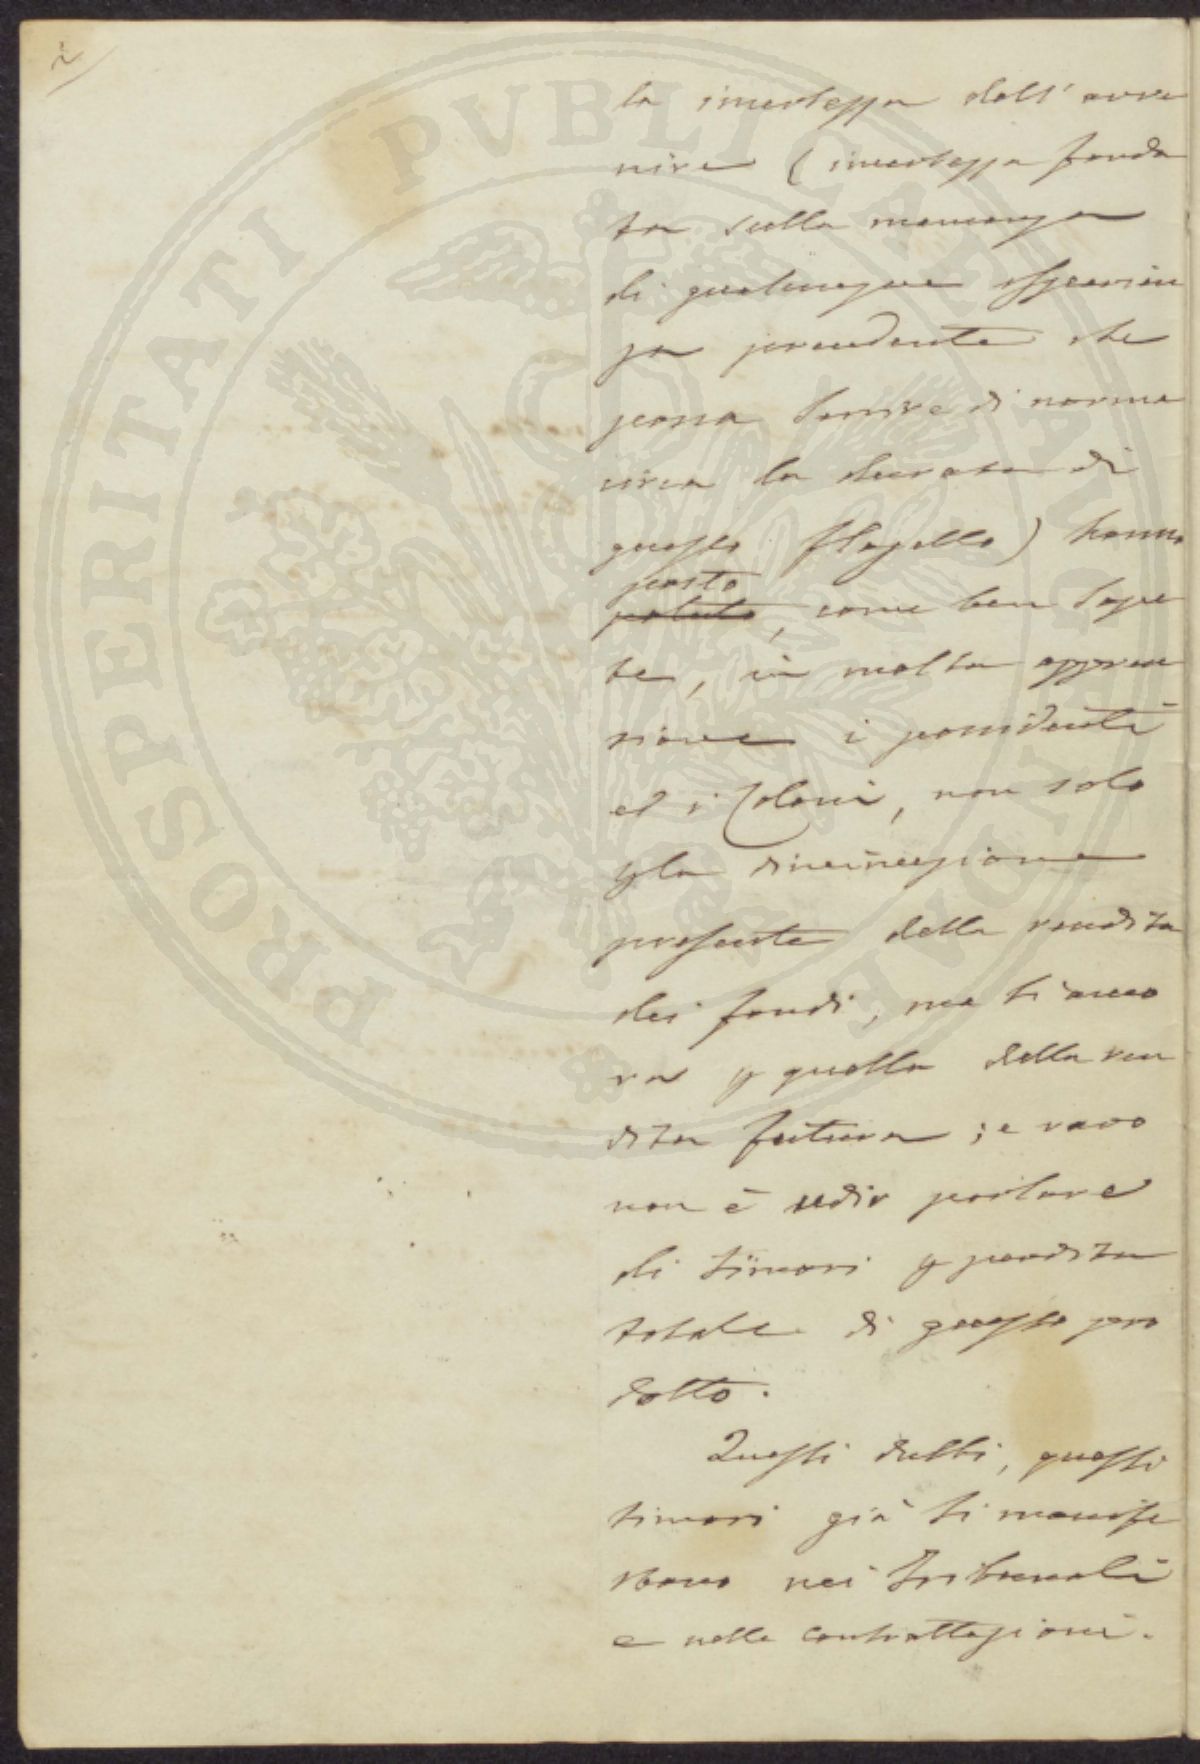 2
la incertezza dell'avve
nire (incertezza fonda
ta sulla mancanza
di qualunque esperien
za precedente che
possa servire di norma
circa la durata di
questo flagello) hanno
posto
potuto, come ben sape
te, in molta appren
sione i possidenti
ed i Coloni, non solo
p la diminuzione
presente della rendita
dei fondi, ma si anco
ra p quella della ren
dita futura; e raro
non è udir parlare
di timori p perdita
totale di questo pro
dotto.
Questi dubbi, questi
timori già si manife
stano nei Tribunali
e nelle contrattazioni.
PROSPERITATI PVBLICAE AVGENDAE